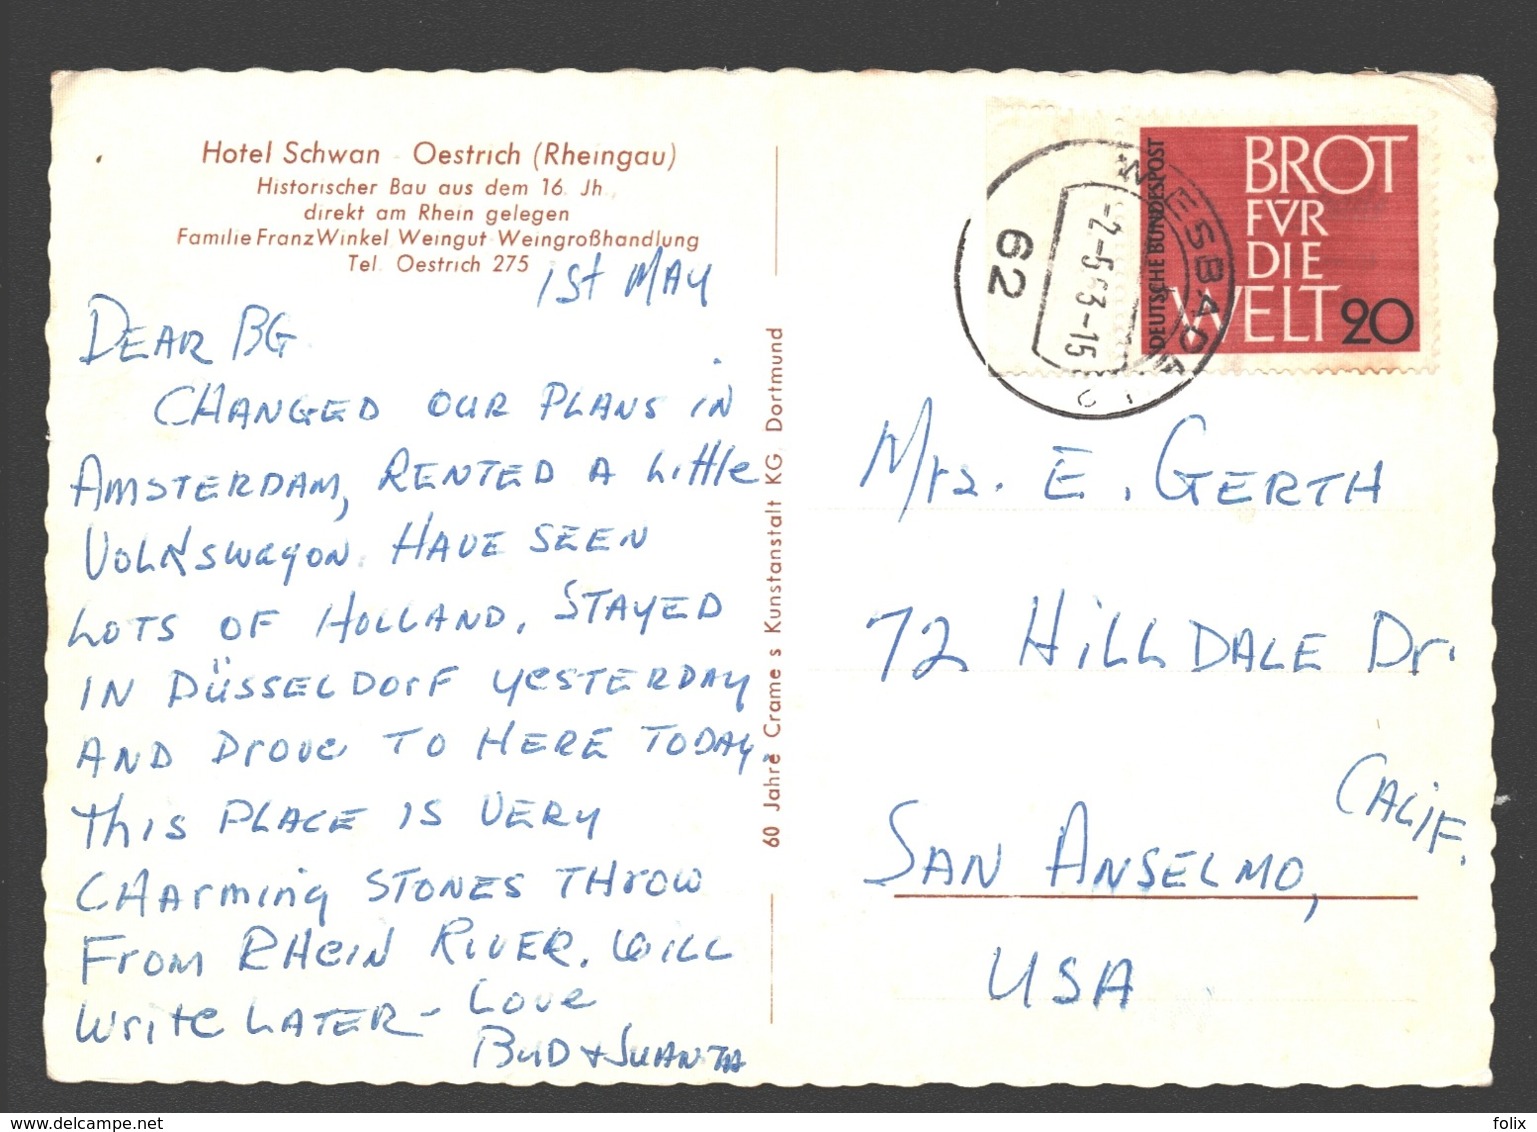 Hotel Schwan - Oestrich (Rheingau)
Historischer Bau aus dem 16. Jh.
direkt am Rhein gelegen
Familie Franz Winkel Weingut-Weingroßhandlung
Tel. Oestrich 275
1st MAY
DEAR BG
CHANGED OUR PLANS IN
AMSTERDAM, RENTED A Little
VOLKSWagON. HAVE SEEN
LOTS OF HOLLAND, STAYED
IN DÜSSELDORF YESTERDAY
AND Drove TO HERE TODAY.
THIS PLACE IS VERY
CHArming STONES THrOW
From RHEIN RIVER. WILL
Write LATER - Love
BUD + JUANITA
60 Jahre Crame s Kunstanstalt KG. Dortmund
WIESBADEN
-2.-5.63-15
62
DEUTSCHE BUNDESPOST
BROT
FVR
DIE
WELT 20
Mrs. E. GERTH
72 HILLDALE Dr.
SAN ANSELMO, CALIF.
USA
www.delcampe.net
folix